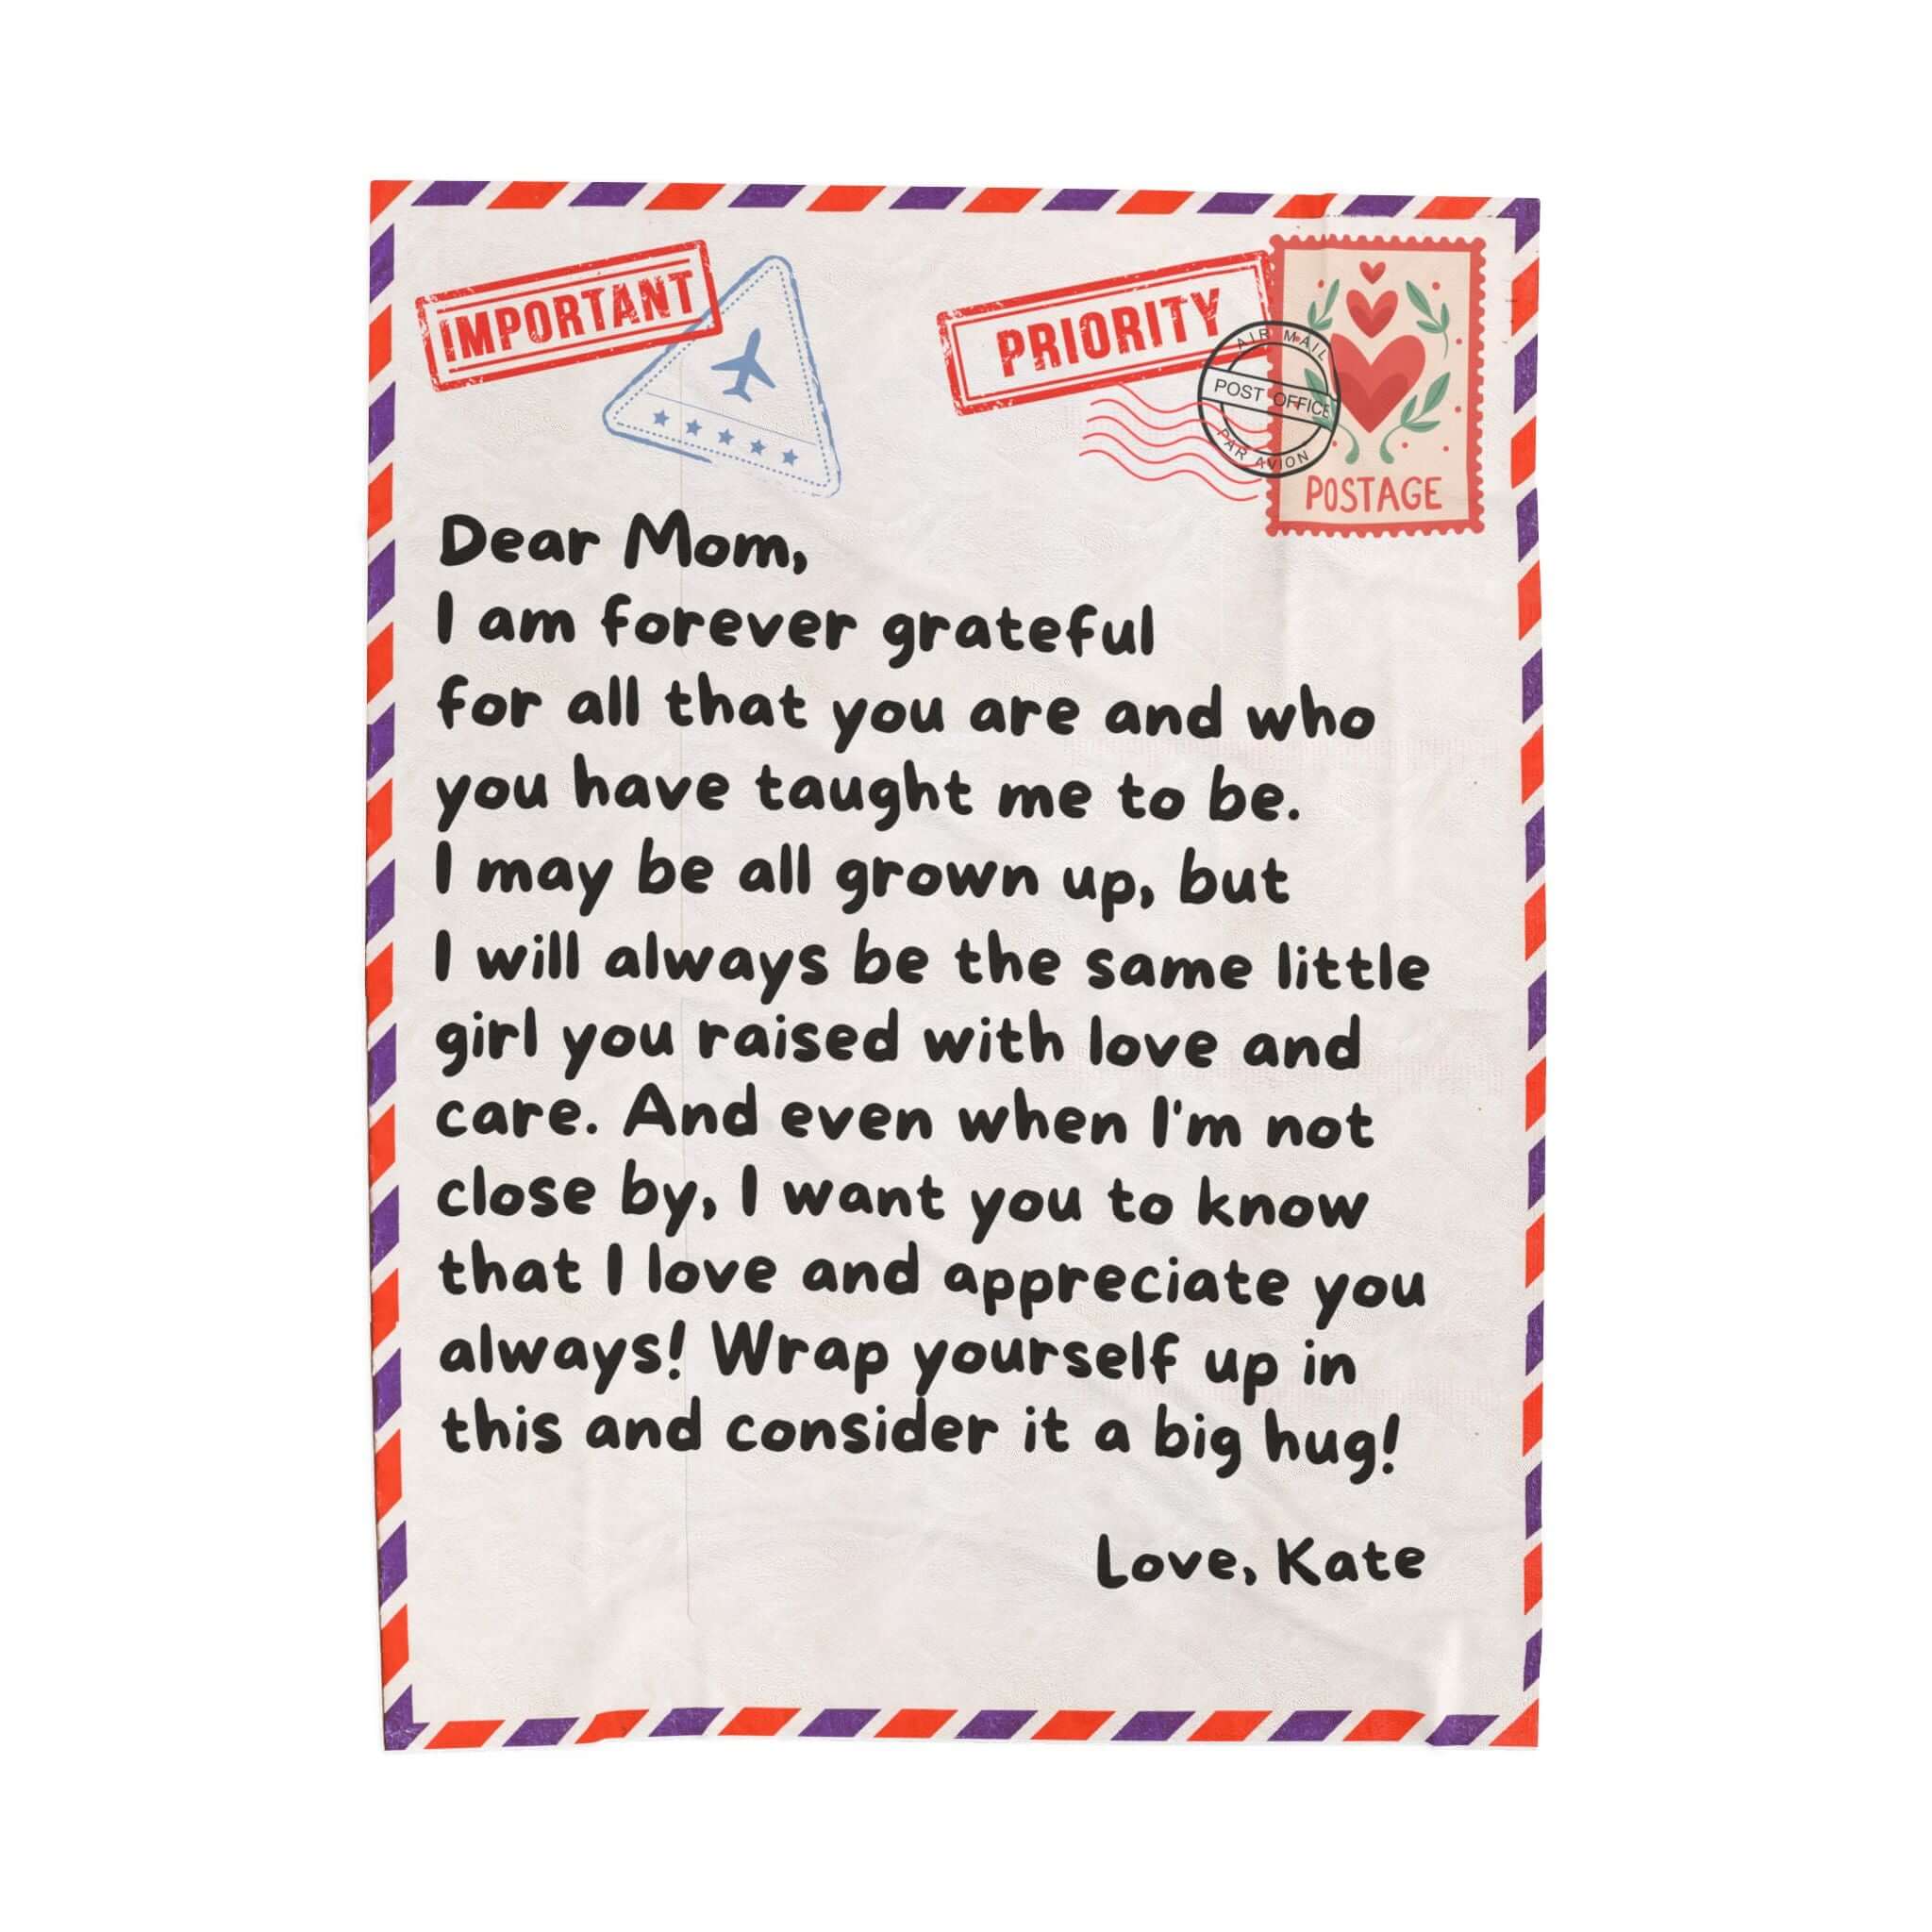 IMPORTANT
PRIORITY
AIR MAIL
POST OFFICE
PAR AVION
POSTAGE
Dear Mom,
I am forever grateful
for all that you are and who
you have taught me to be.
I may be all grown up, but
I will always be the same little
girl you raised with love and
care. And even when I'm not
close by, I want you to know
that I love and appreciate you
always! Wrap yourself up in
this and consider it a big hug!
Love, Kate